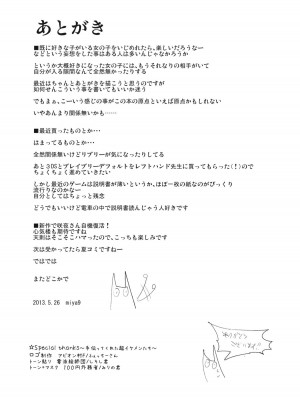 あとがき
■既に好きな子がいる女の子をいじめれたら、楽しいだろうなー
などという妄想をした事はある人は多いんじゃなかろうか
というか大概好きになった女の子には、もうそれなりの相手がいて
自分が入る隙間なんて全然無かったりする
最近はちゃんとあとがきを描こうと思うのですが
如何せんこういう事を書いてもいいか迷う
でもまぁ、こーいう感じの事がこの本の原点といえば原点かもしれない
いやあんまり関係無いかも…
■最近買ったものとか…
はまってるものとか…
全然関係無いけどリブリーが気になったりしてる
あと3DSとブレイブリーデフォルトをレフトハンド先生に買ってもらった(！)ので
ちょくちょく進めていきたい
しかし最近のゲームは説明書が薄いというか、ほぼ一枚の紙なのがびっくり
流行りなのかなー
自分としてはちょっと残念
どうでもいいけど電車の中で説明書読んじゃう人好きです
■新作で咲夜さん自機復活！
心綺楼も期待ですね
天則はそこそこハマったので、こっちも楽しみです
次は受かってたら夏コミですねー
ではでは
またどこかで
2013.5.26 miya9
ありがとう
ございます!!
☆Special thanks～手伝ってくれた超イケメンたち～